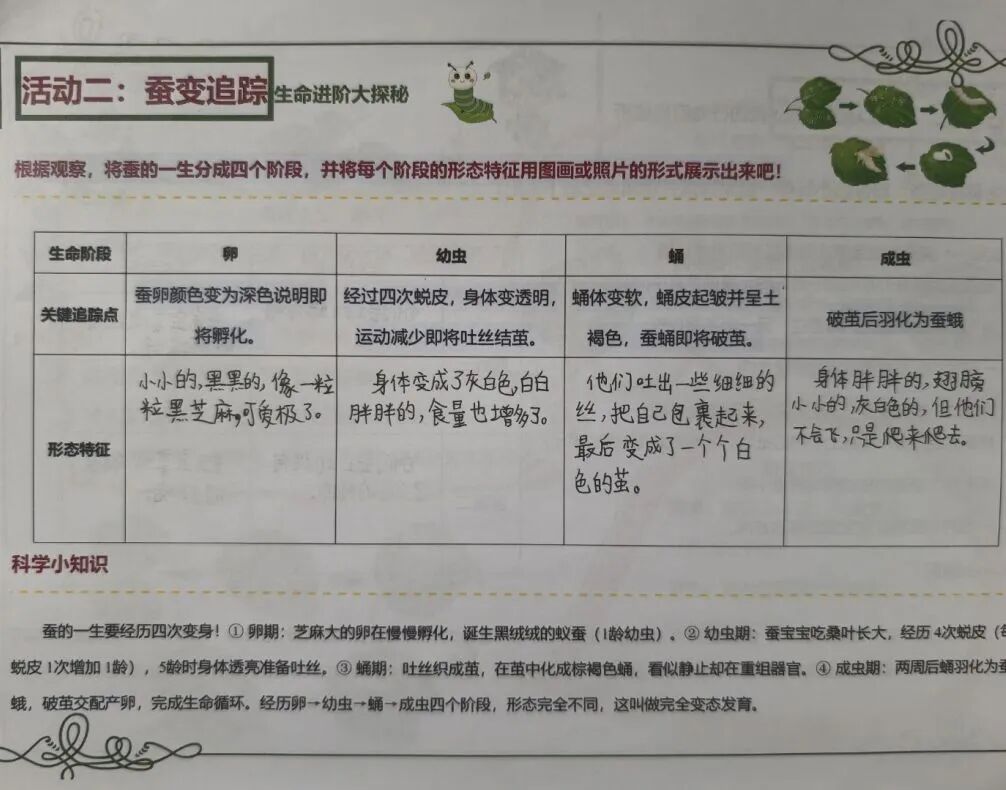 活动二：蚕变追踪 生命进阶大探秘
根据观察，将蚕的一生分成四个阶段，并将每个阶段的形态特征用图画或照片的形式展示出来吧！
生命阶段 卵 幼虫 蛹 成虫
关键追踪点
蚕卵颜色变为深色说明即
将孵化。
经过四次蜕皮，身体变透明，
运动减少即将吐丝结茧。
蛹体变软，蛹皮起皱并呈土
褐色，蚕蛹即将破茧。
破茧后羽化为蚕蛾
形态特征
小小的，黑黑的，像一粒
粒黑芝麻，可爱极了。
身体变成了灰白色，白白
胖胖的，食量也增多了。
他们吐出一些细细的
丝，把自己包裹起来，
最后变成了一个个白
色的茧。
身体胖胖的，翅膀
小小的，灰白色的，但他们
不会飞，只是爬来爬去。
科学小知识
蚕的一生要经历四次变身！① 卵期：芝麻大的卵在慢慢孵化，诞生黑绒绒的蚁蚕（1龄幼虫）。② 幼虫期：蚕宝宝吃桑叶长大，经历 4次蜕皮（
蜕皮 1次增加 1龄），5龄时身体透亮准备吐丝。③ 蛹期：吐丝织成茧，在茧中化成棕褐色蛹，看似静止却在重组器官。④ 成虫期：两周后蛹羽化为
蛾，破茧交配产卵，完成生命循环。经历卵→幼虫→蛹→成虫四个阶段，形态完全不同，这叫做完全变态发育。